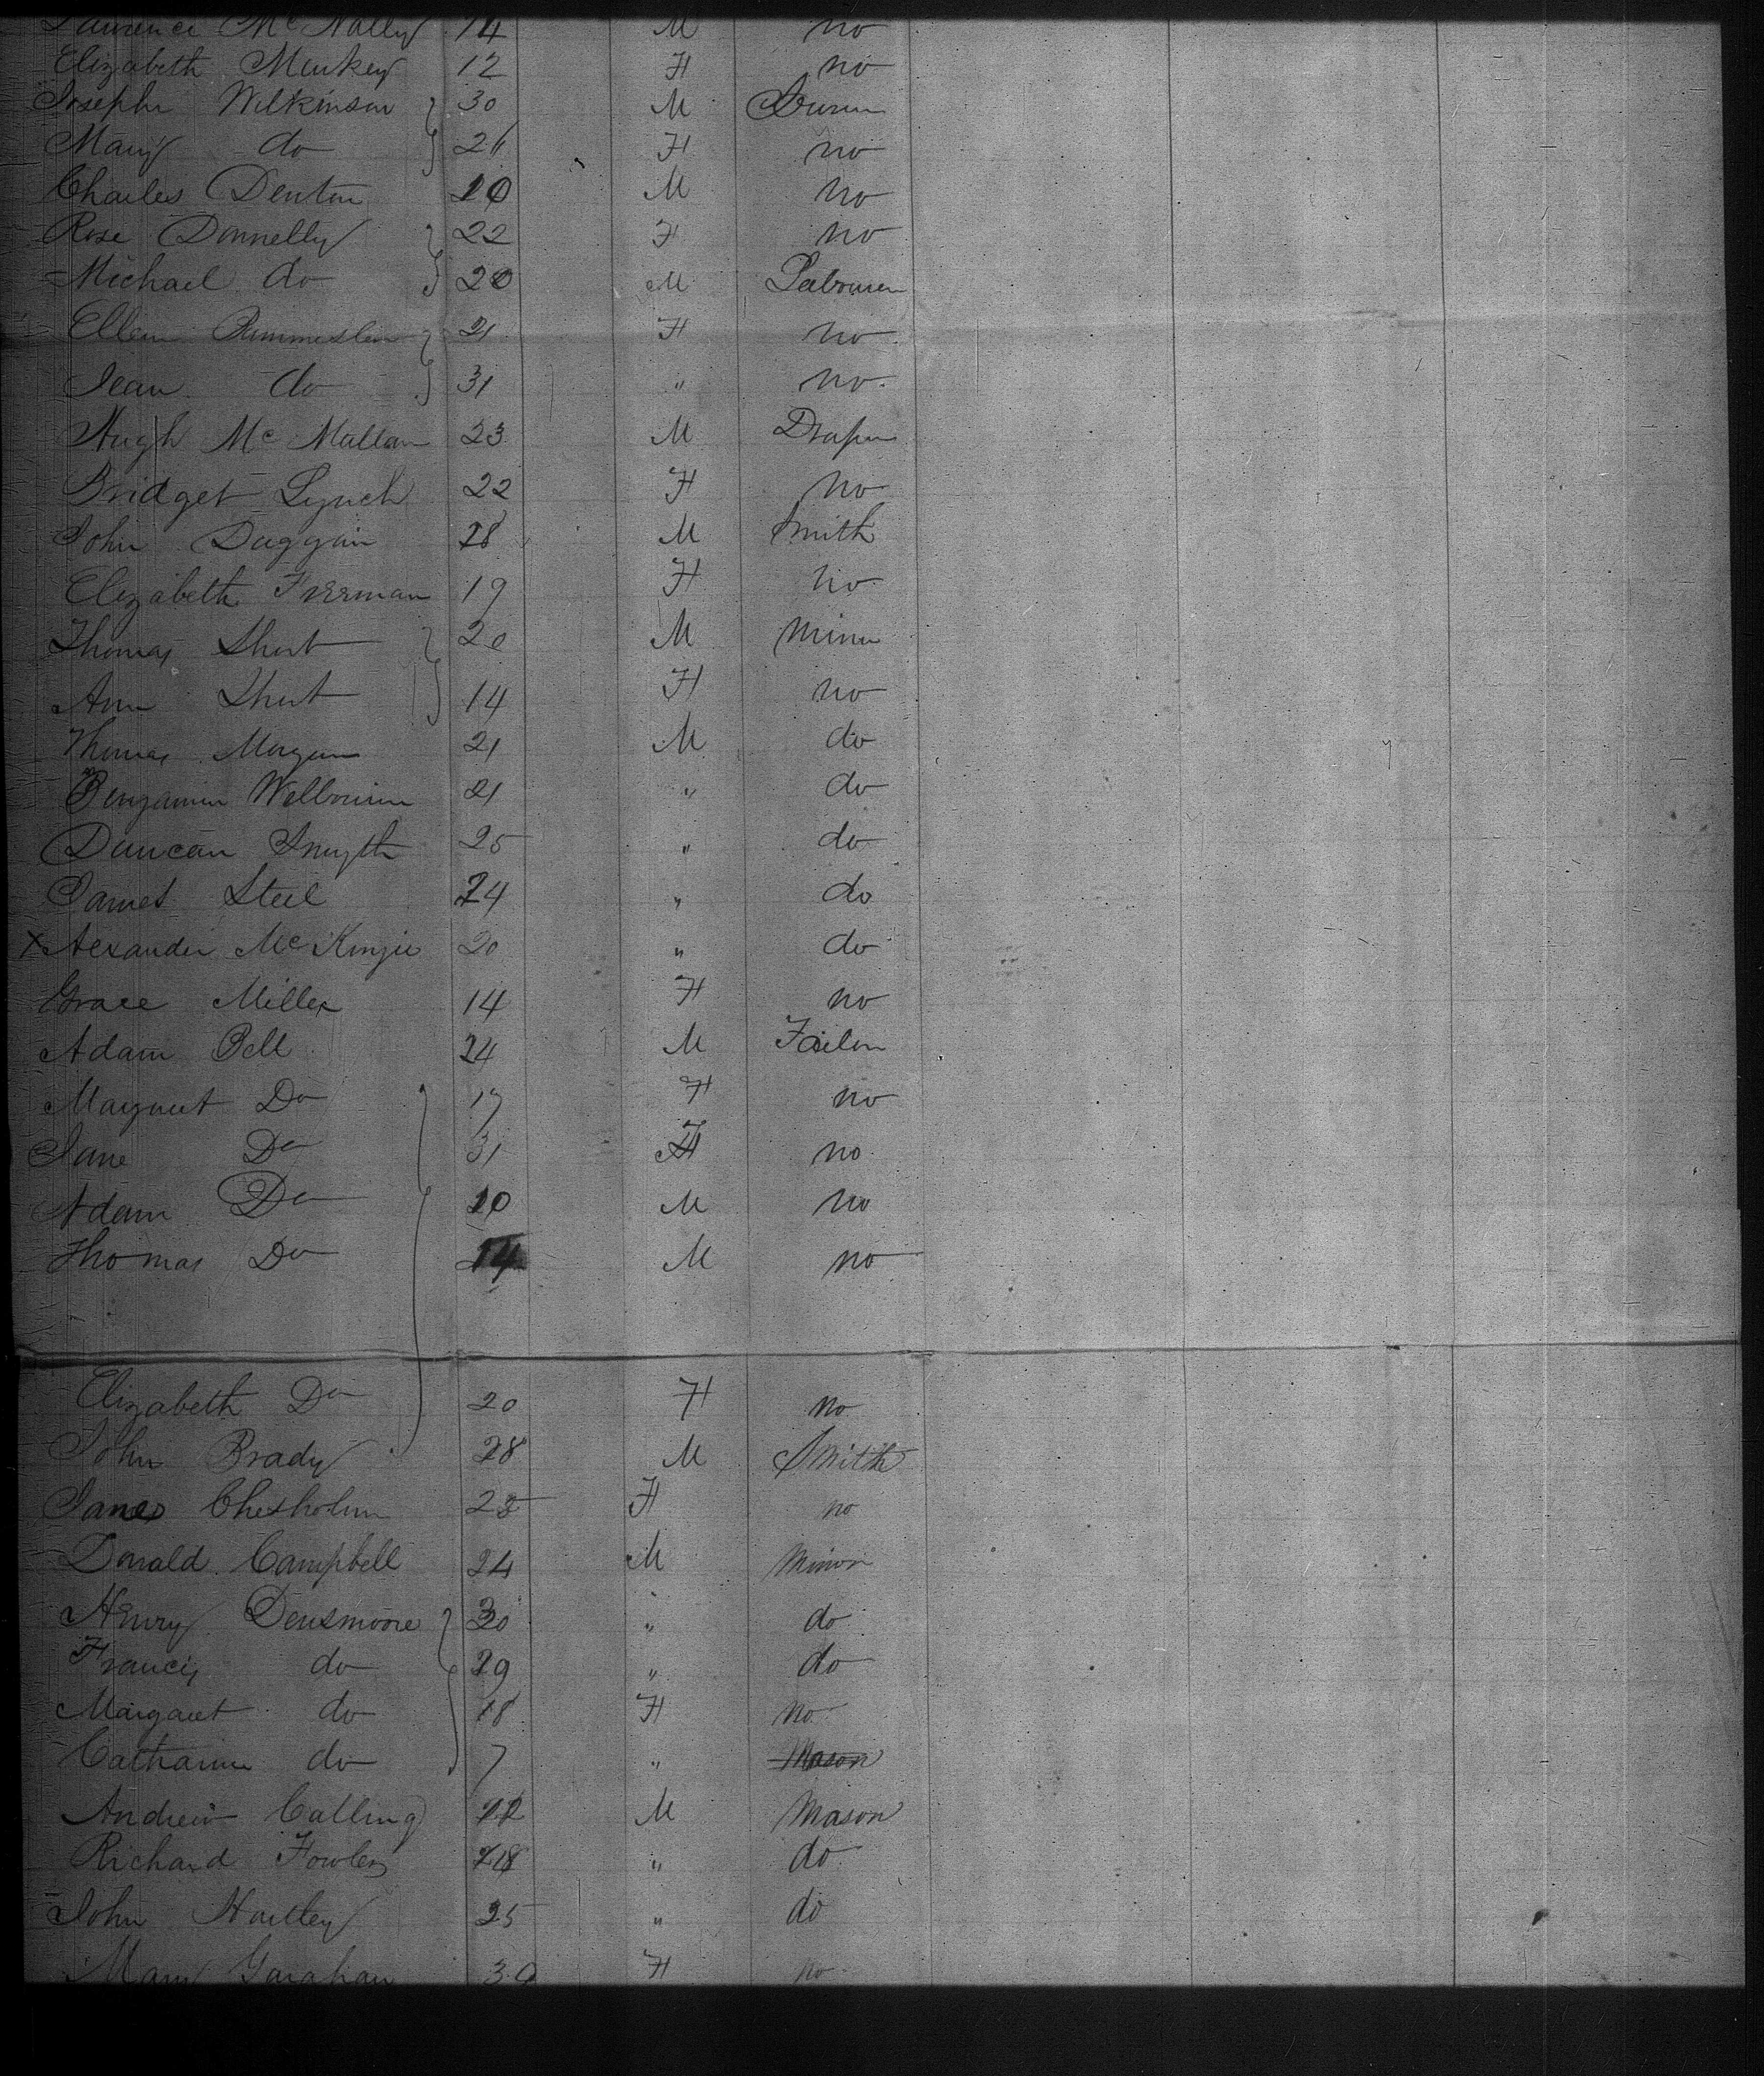 Laurence McNally 14 M no
Elizabeth Markey 12 F no
Joseph Wilkinson 30 M
Mary do 26 F no
Charles Denton 20 M no
Rose Donnelly 22 F no
Michael do 20 M Labourer
Ellen 21 F no
Jean do 31 " no
Hugh Mc Mallan 23 M Draper
Bridget Lynch 22 F no
John Duggan 28 M Smith
Elizabeth Freeman 19 F no
Thomas Short 20 M Miner
Ann Short 14 F no
Thomas Morgan 21 M do
Benjamin Welbourn 21 " do
Duncan Smyth 25 " do
James Steel 24 " do
X Alexander McKinzie 20 " do
Grace Miller 14 F no
Adam Bell 24 M Tailor
Margaret Do 17 F no
Jane Do 31 F no
Adam Do 10 M no
Thomas Do 14 M no
Elizabeth Do 20 F no
John Brady 28 M Smith
Janes Chesholm 25 F no
Donald Campbell 24 M Minor
Henry Densmoore 30 " do
Francis do 29 " do
Margaret do 18 F no
Catharine do 7 " Mason
Andrew Calling 22 M Mason
Richard Fowler 28 " do
John Hartley 25 " do
Mary Garahan 30 F no